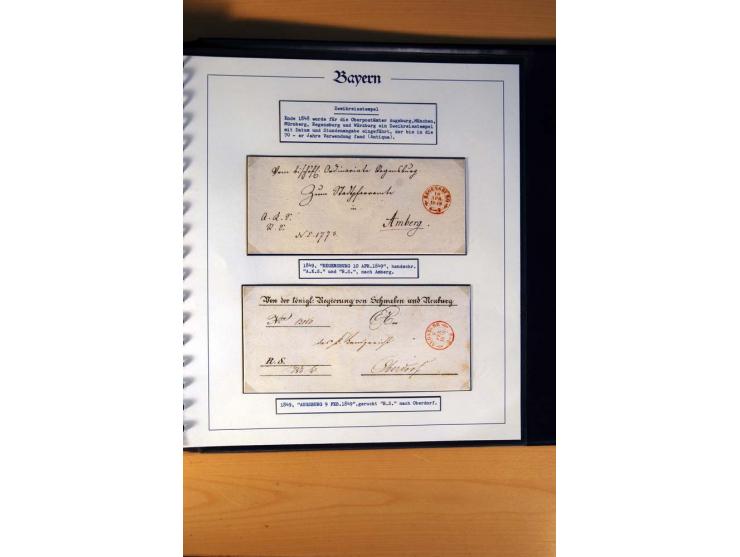 Bayern
Zweikreisstempel
Ende 1848 wurde für die Oberpostämter Augsburg, München,
Nürnberg, Regensburg und Würzburg ein Zweikreisstempel
mit Datum und Stundenangabe eingeführt, der bis in die
70 - er Jahre Verwendung fand (Antiqua).
Vom bischöfl. Ordinariate Regensburg
Zum Stadtpfarramte
in
Amberg.
A. K. S.
R. S.
N.E. 1773.
REGENSBURG
10
APR.
1849
1849, "REGENSBURG 10 APR.1849", handschr.
"A.K.S." und "R.S.", nach Amberg.
Von der königl. Regierung von Schwaben und Neuburg
An
das k. Landgericht
R. S.
Oberdorf
AUGSBURG
1849, "AUGSBURG 9 FEB.1849",geruckt "R.S." nach Oberdorf.